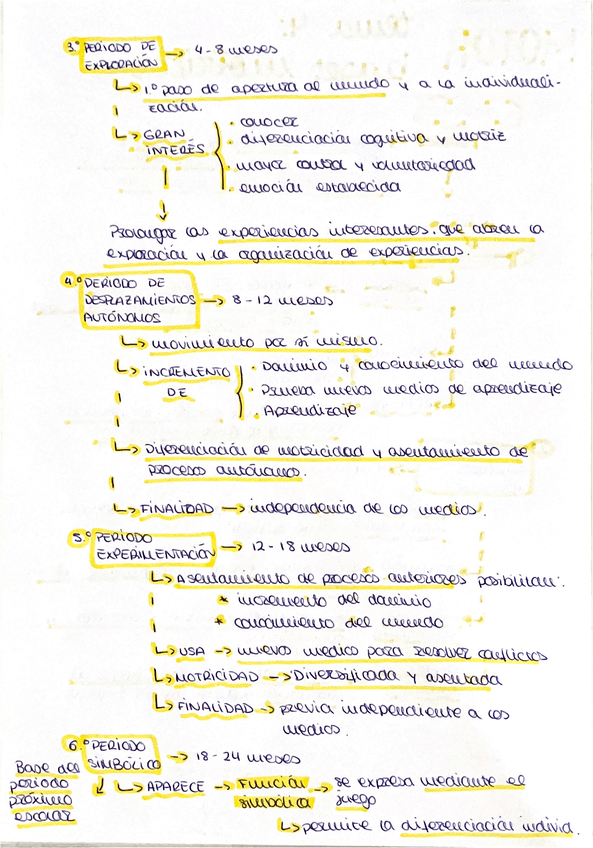 3.º PERIODO DE EXPLORACIÓN → 4-8 meses
↳ 1.º paso de apertura al mundo y a la individuali-
zación.
↳ GRAN INTERÉS
· conocer
· diferenciación cognitiva y motriz
· mayor control y voluntariedad
· emoción establecida
Prolongar las experiencias interesantes que abren la
exploración y la organización de experiencias.
4.º PERIODO DE DESPLAZAMIENTOS AUTÓNOMOS → 8-12 meses
↳ movimiento por sí mismo.
↳ INCREMENTO DE
· Dominio y conocimiento del mundo
· Prueba nuevos medios de aprendizaje
· Aprendizaje
↳ Diferenciación de motricidad y asentamiento de
procesos autónomos.
↳ FINALIDAD → independencia de los medios.
5.º PERIODO EXPERIMENTACIÓN → 12-18 meses
↳ Asentamiento de procesos anteriores posibilitan:
* incremento del dominio
* conocimiento del mundo
↳ USA → nuevos medios para resolver conflictos
↳ MOTRICIDAD → Diversificada y asentada
↳ FINALIDAD → previa independiente a los
medios.
6.º PERIODO SIMBÓLICO → 18-24 meses
Base del
periodo
próximo
escolar
↳ APARECE → Función simbólica → se expresa mediante el
juego
↳ permite la diferenciación individ.